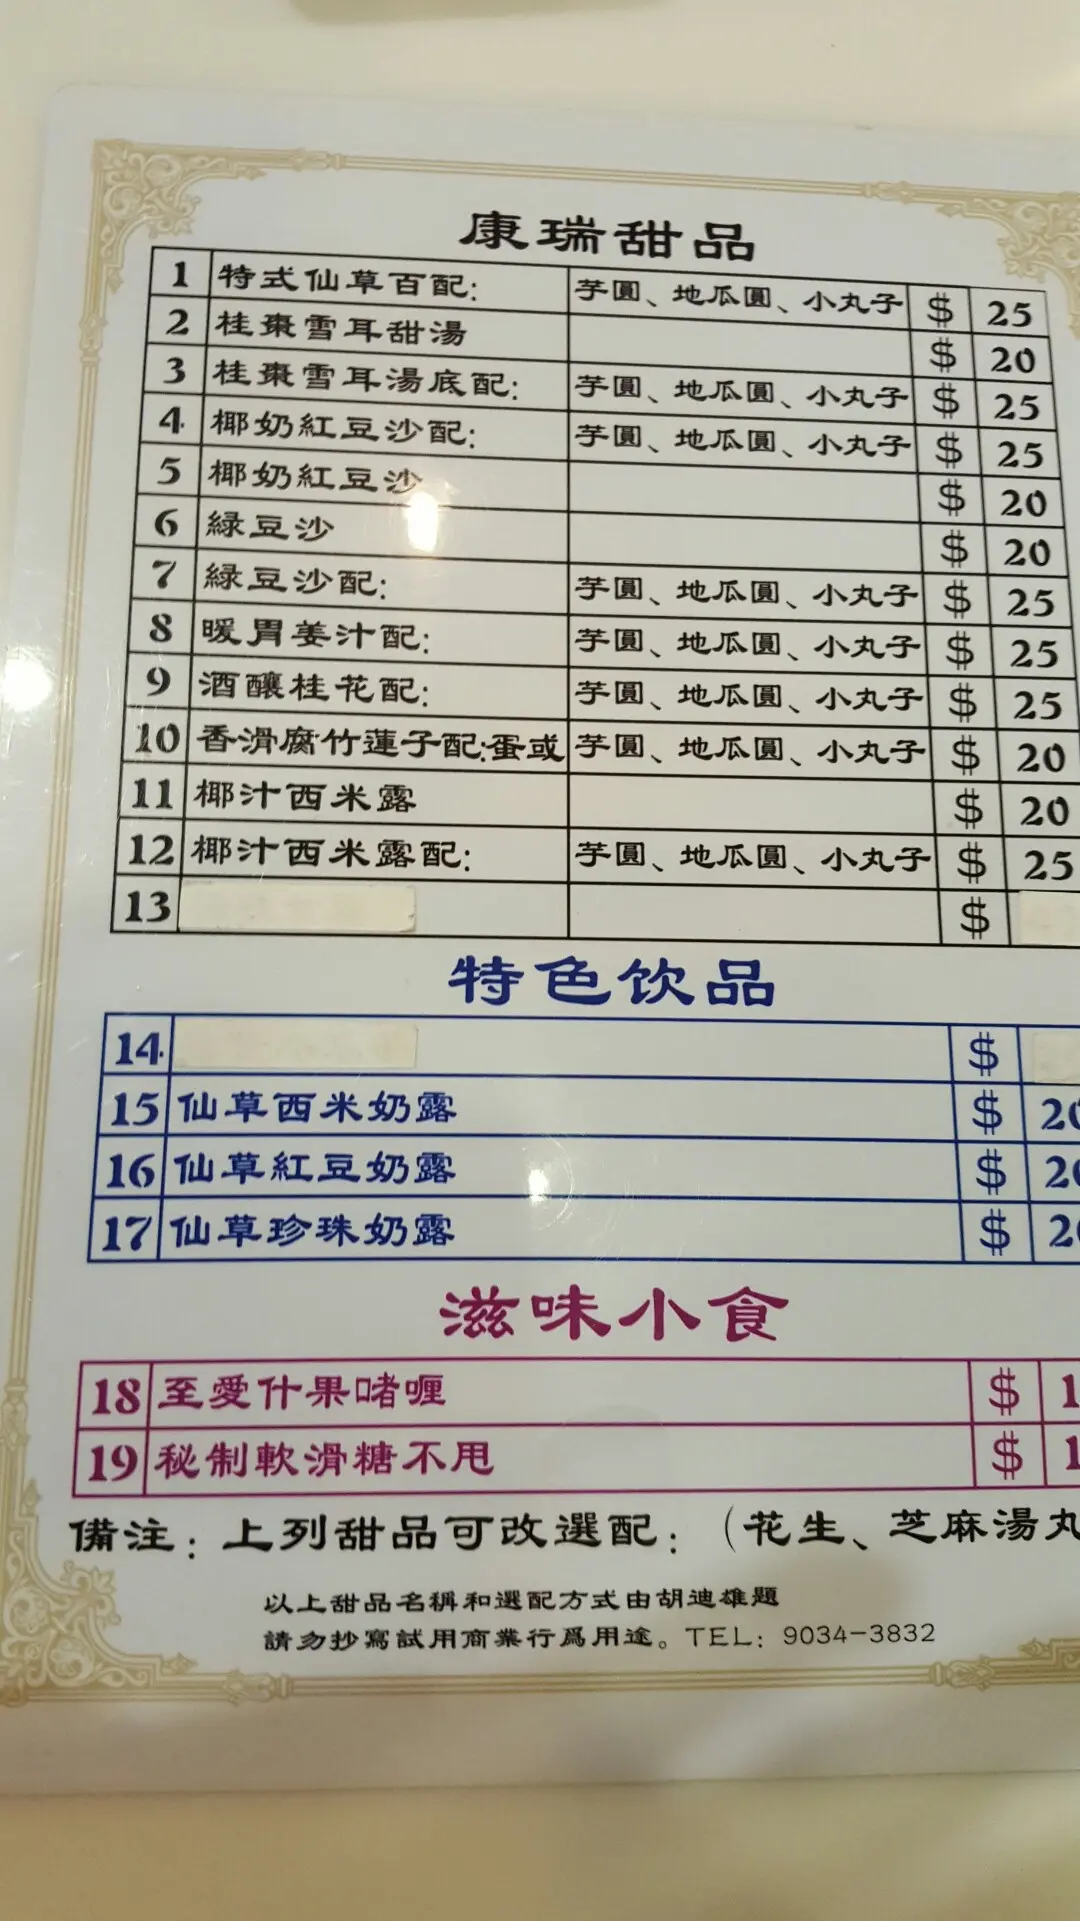 康瑞甜品
1 特式仙草百配: 芋圓、地瓜圓、小丸子 $ 25
2 桂棗雪耳甜湯 $ 20
3 桂棗雪耳湯底配: 芋圓、地瓜圓、小丸子 $ 25
4 椰奶紅豆沙配: 芋圓、地瓜圓、小丸子 $ 25
5 椰奶紅豆沙 $ 20
6 綠豆沙 $ 20
7 綠豆沙配: 芋圓、地瓜圓、小丸子 $ 25
8 暖胃姜汁配: 芋圓、地瓜圓、小丸子 $ 25
9 酒釀桂花配: 芋圓、地瓜圓、小丸子 $ 25
10 香滑腐竹蓮子配:蛋或 芋圓、地瓜圓、小丸子 $ 20
11 椰汁西米露 $ 20
12 椰汁西米露配: 芋圓、地瓜圓、小丸子 $ 25
13 $
特色饮品
14 $
15 仙草西米奶露 $ 20
16 仙草紅豆奶露 $ 20
17 仙草珍珠奶露 $ 20
滋味小食
18 至愛什果啫喱 $ 1
19 秘制軟滑糖不甩 $ 1
備注: 上列甜品可改選配: (花生、芝麻湯丸
以上甜品名稱和選配方式由胡迪雄題
請勿抄寫試用商業行爲用途。TEL: 9034-3832